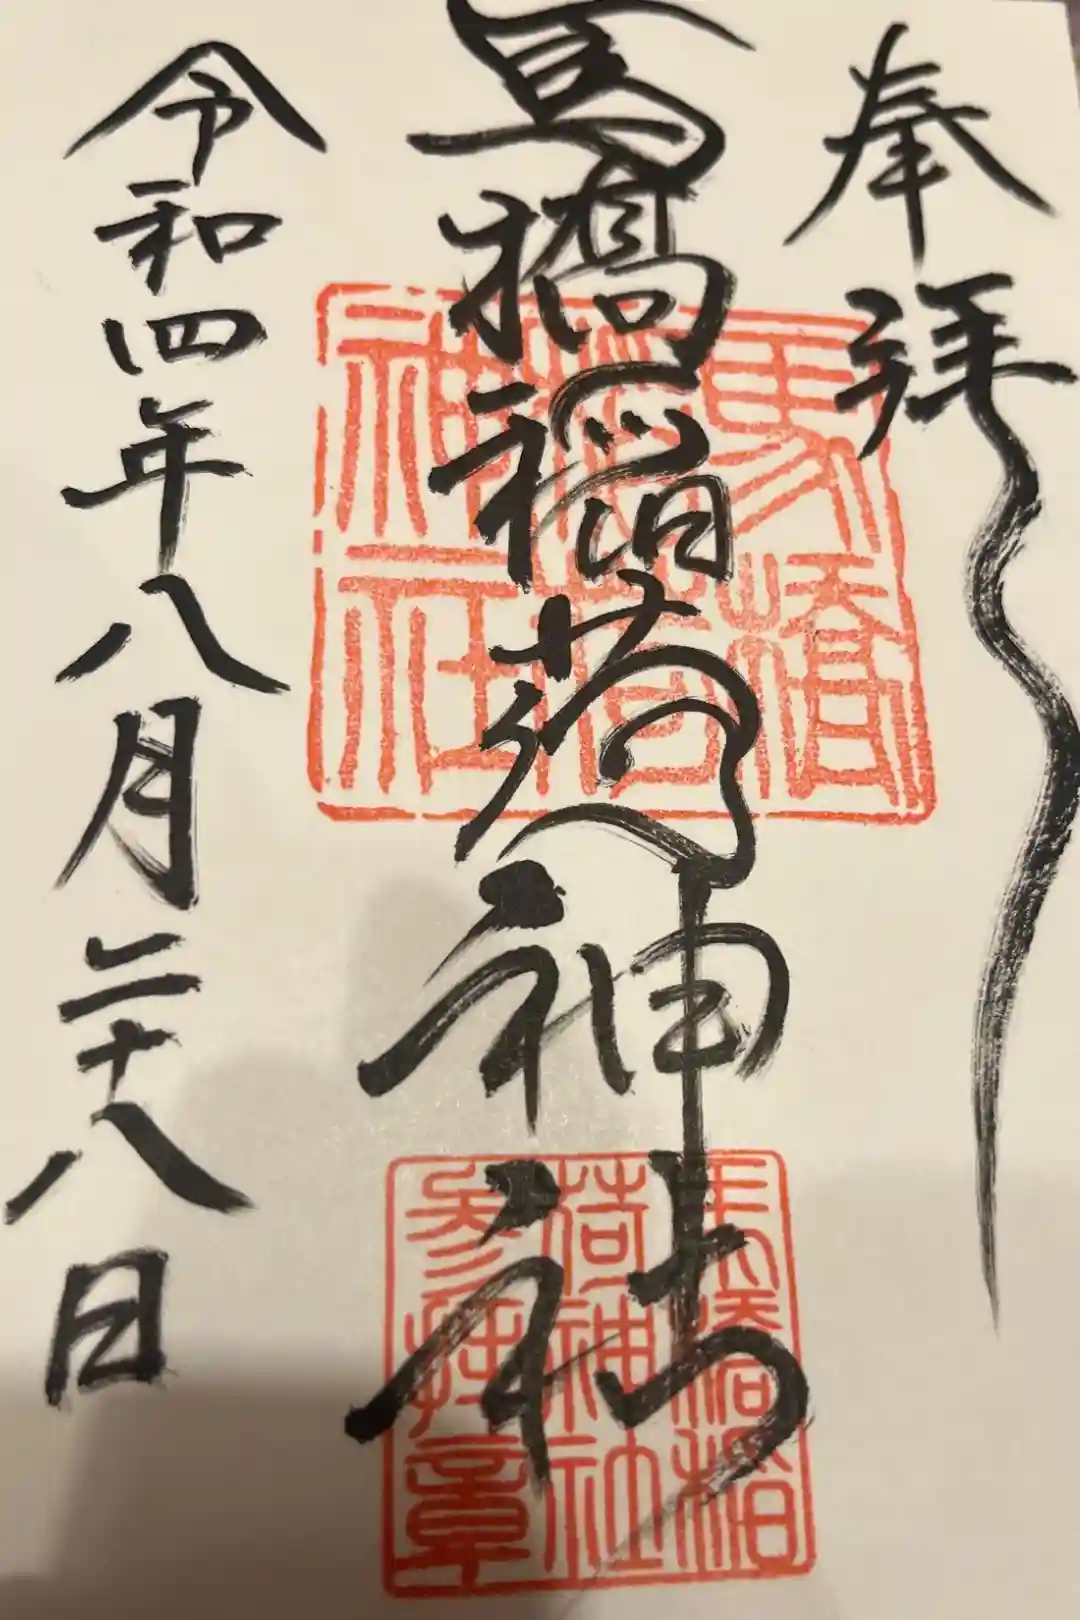 奉拝
馬橋稲荷神社
令和四年八月二十八日
馬橋
稲荷
神社
馬橋稲
荷神社
参拝章